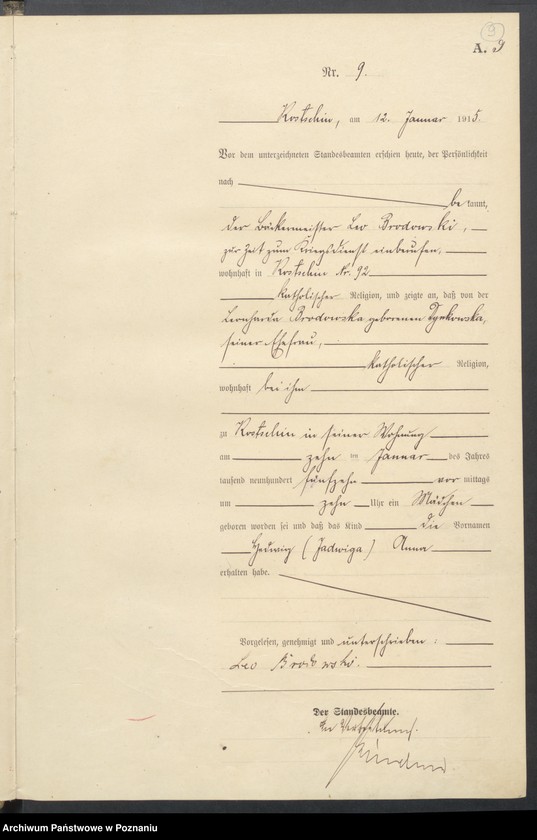 9
A. 9
Nr. 9.
Kostschin, am 12. Januar 1915.
Vor dem unterzeichneten Standesbeamten erschien heute, der Persönlichkeit
nach
bekannt,
der Bäckermeister Leo Brodowski,
zur Zeit zum Kriegsdienst einberufen,
wohnhaft in Kostschin Nr. 92
katholischer Religion, und zeigte an, daß von der
Leonharda Brodowska geborenen
seiner Ehefrau,
katholischer Religion,
wohnhaft bei ihm
zu Kostschin in seiner Wohnung
am zehn ten Januar des Jahres
tausend neunhundert fünfzehn vor mittags
um zehn Uhr ein Mädchen
geboren worden sei und daß das Kind die Vornamen
Hedwig (Jadwiga) Anna
erhalten habe.
Vorgelesen, genehmigt und unterschrieben:
Leo Brodowski.
Der Standesbeamte.
In Vertretung.
Archiwum Państwowe w Poznaniu